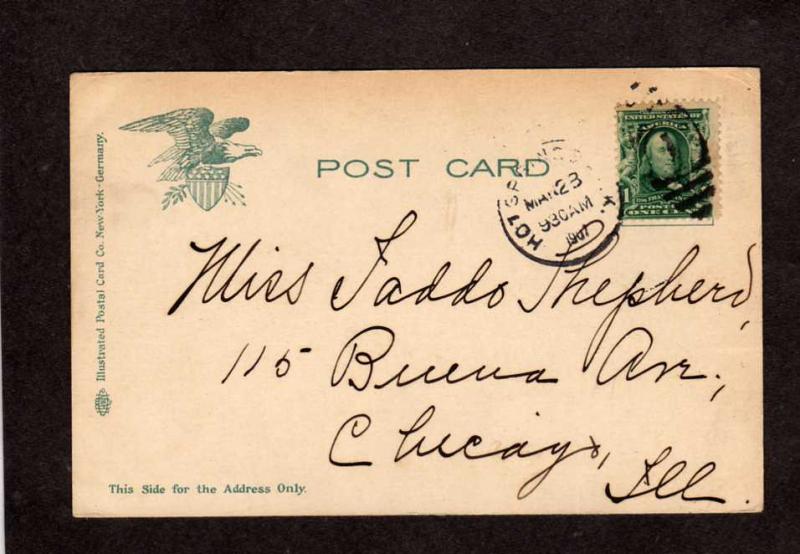 Illustrated Postal Card Co. New-York-Germany.
POST CARD
HOT SPRINGS
MAR 23
930 AM
1907
UNITED STATES OF
AMERICA
1
POSTAGE
ONE CENT
Miss Taddo Shepherd,
115 Buena Ave.,
Chicago,
Ill.
This Side for the Address Only.